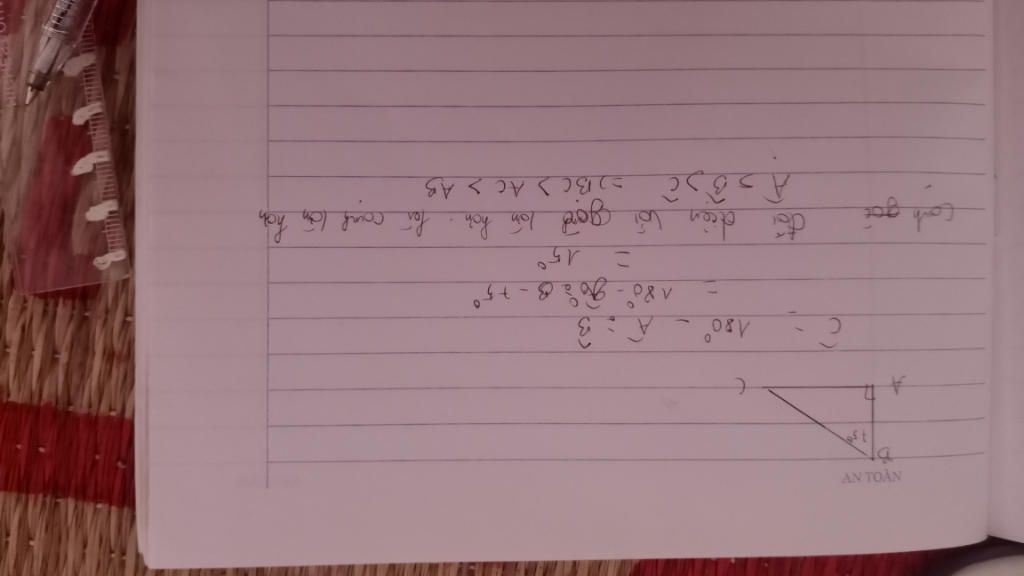 AN TOÀN
B
75°
A C
Ĉ = 180° - Â - B̂
= 180° - 90° - 75°
= 15°
đối diện với góc lớn hơn là cạnh lớn hơn
Â > B̂ > Ĉ => BC > AC > AB